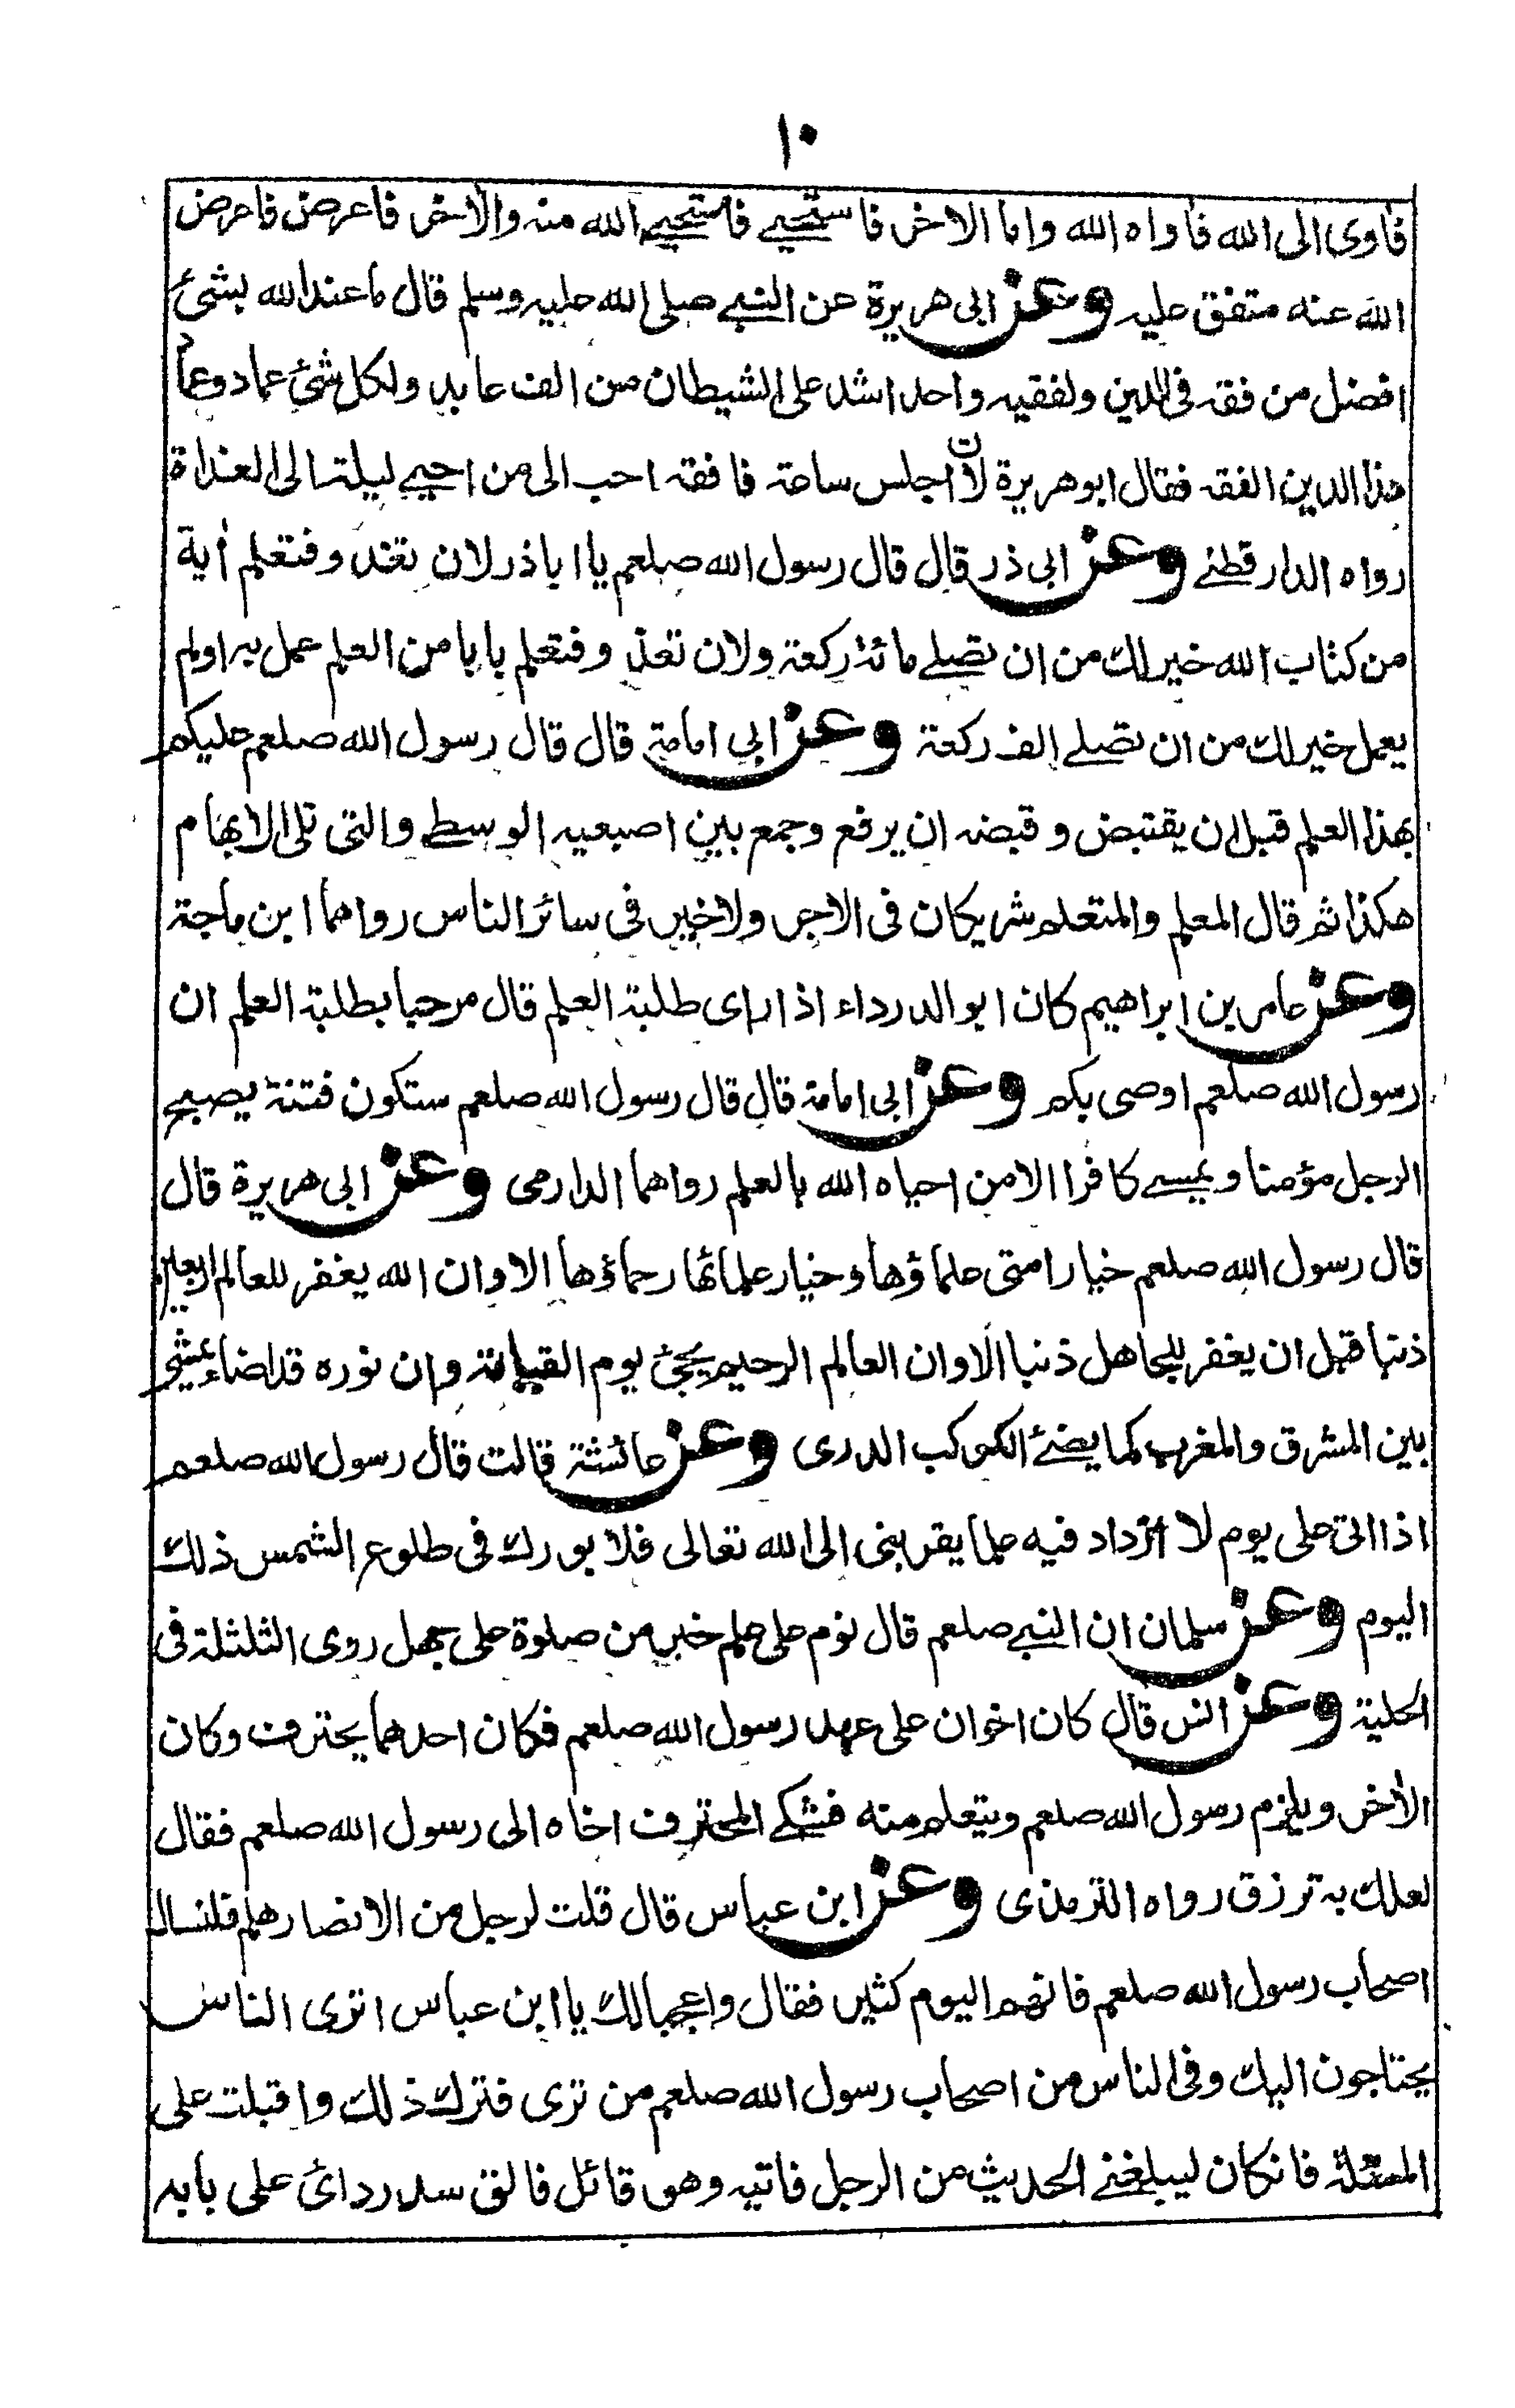 ١٠
فاوى الى الله فاواه الله واما الاخر فاستحيى فاستحيى الله منه والاخر فاعرض فاعرض
الله عنه متفق عليه وعن ابى هريرة عن النبى صلى الله عليه وسلم قال ما عند الله بشئ
افضل من فقه فى الدين ولفقيه واحد اشد على الشيطان من الف عابد ولكل شئ عماد وعماد
هذا الدين الفقه فقال ابو هريرة لان اجلس ساعة فافقه احب الى من احيى ليلة الى الغداة
رواه الدار قطنى وعن ابى ذر قال قال رسول الله صلعم يا ابا ذر لان تغد وفتعلم أية
من كتاب الله خير لك من ان تصلى مائة ركعة ولان تغد وفتعلم بابا من العلم عمل به اولم
يعمل خير لك من ان تصلى الف ركعة وعن ابى امامة قال قال رسول الله صلعم عليكم
بهذا العلم قبل ان يقتبض وقبضه ان يرفع وجمع بين اصبعيه الوسطى والتى تلى الابهام
هكذا ثم قال المعلم والمتعلم شريكان فى الاجر ولا خير فى سائر الناس رواهما ابن ماجة
وعن عامر بن ابراهيم كان ابو الدرداء اذا راى طلبة العلم قال مرحبا بطلبة العلم ان
رسول الله صلعم اوصى بكم وعن ابى امامة قال قال رسول الله صلعم ستكون فتنة يصبح
الرجل مؤمنا ويمسى كافرا الا من احياه الله بالعلم رواهما الدارمى وعن ابى هريرة قال
قال رسول الله صلعم خيار امتى علماؤها وخيار علمائها رحماؤها الا وان الله يغفر للعالم اربعين
ذنبا قبل ان يغفر للجاهل ذنبا الا وان العالم الرحيم يجئ يوم القيامة وان نوره قد اضاء يمشى
بين المشرق والمغرب كما يضئ الكوكب الدرى وعن عائشة قالت قال رسول الله صلعم
اذا اتى على يوم لا ازداد فيه علما يقربنى الى الله تعالى فلا بورك فى طلوع الشمس ذلك
اليوم وعن سلمان ان النبى صلعم قال نوم على علم خير من صلوة على جهل روى الثلثلة فى
الحلية وعن انس قال كان اخوان على عهد رسول الله صلعم فكان احدهما يحترف وكان
الأخر ويلزم رسول الله صلعم ويتعلم منه فشكى المحترف اخاه الى رسول الله صلعم فقال
لعلك به ترزق رواه الترمذى وعن ابن عباس قال قلت لرجل من الانصار هلم فلنسال
اصحاب رسول الله صلعم فانهم اليوم كثير فقال واعجبا لك يا ابن عباس اترى الناس
يحتاجون اليك وفى الناس من اصحاب رسول الله صلعم من ترى فترك ذلك واقبلت على
المسئلة فانكان ليبلغنى الحديث من الرجل فاتيه وهو قائل فالق سد ردائ على بابه